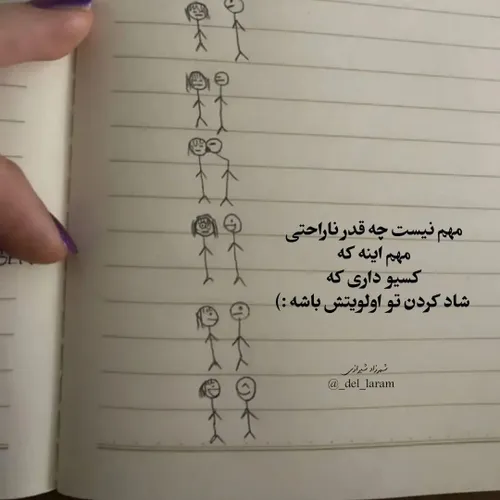 مهم نیست چه قدر ناراحتی
مهم اینه که
کسیو داری که
شاد کردن تو اولویتش باشه :)
شهرزاد شیرازی
@_del_laram